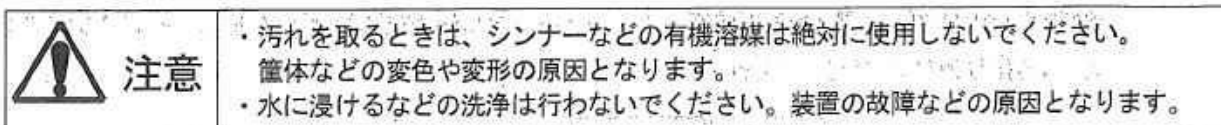 注意
・汚れを取るときは、シンナーなどの有機溶媒は絶対に使用しないでください。
筐体などの変色や変形の原因となります。
・水に浸けるなどの洗浄は行わないでください。装置の故障などの原因となります。